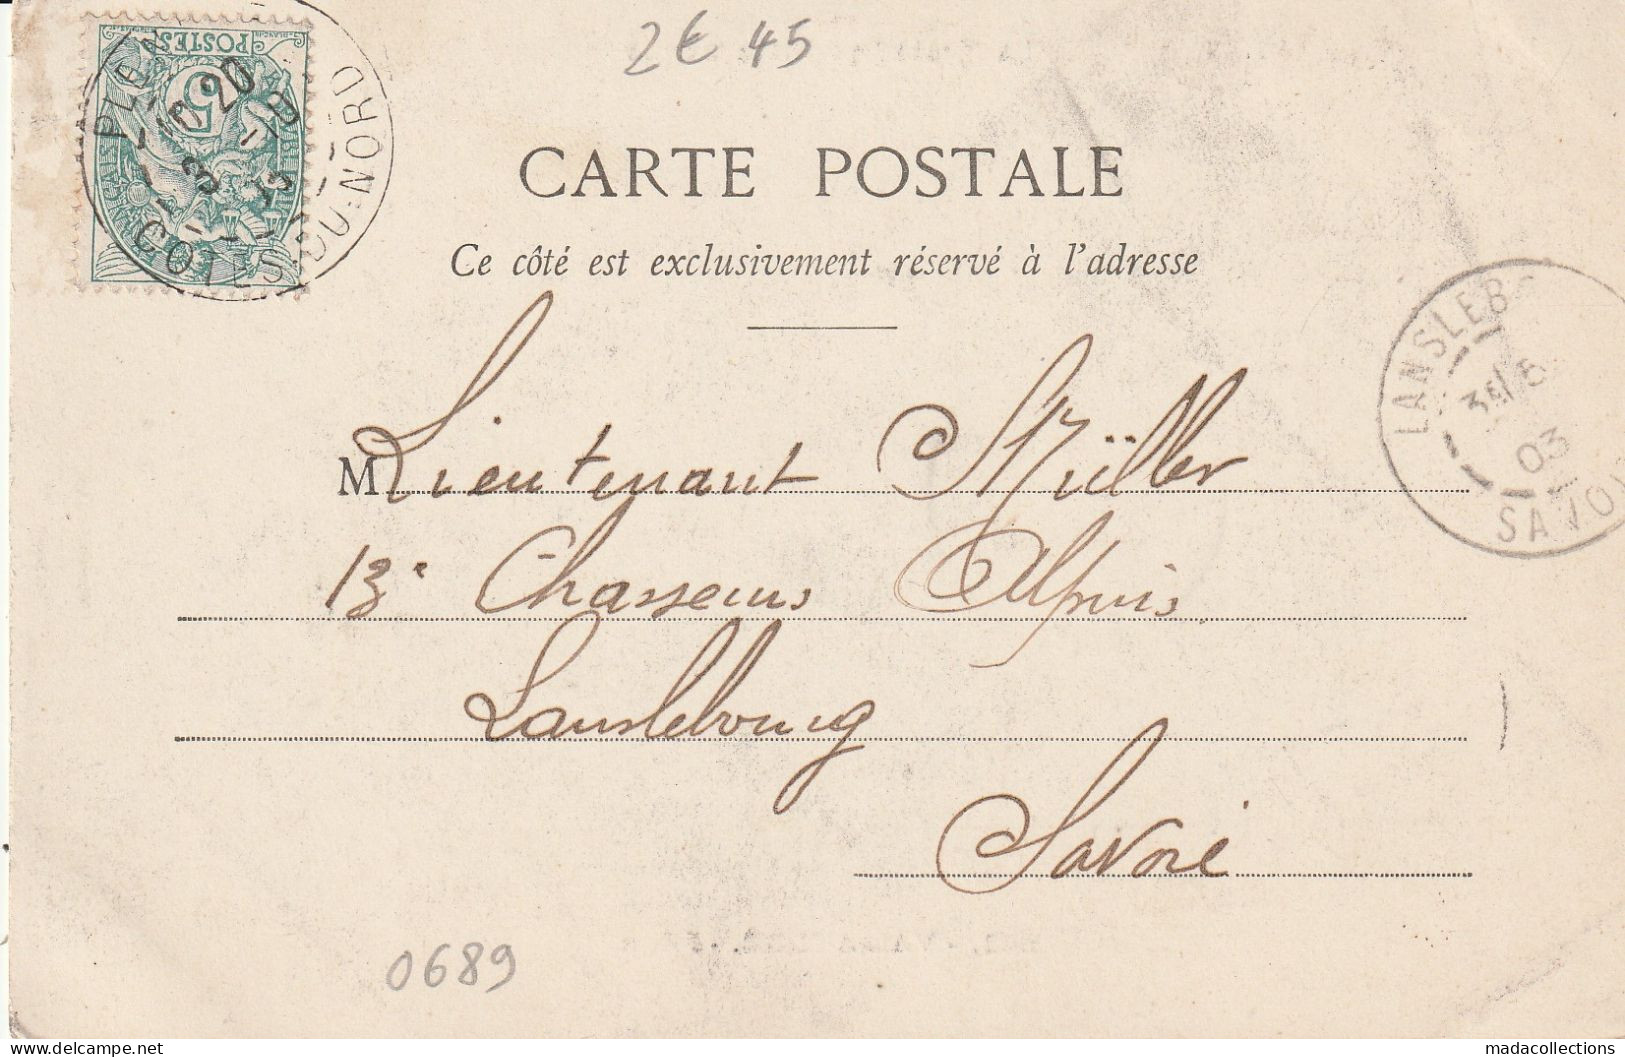 2€45
POSTES
5
COTES-DU-NORD
CARTE POSTALE
Ce côté est exclusivement réservé à l'adresse
SAVOI
03
M Lieutenant Müller
13e Chasseurs Alpins
Lanslebourg
Savoie
0689
delcampe.net
madacollections